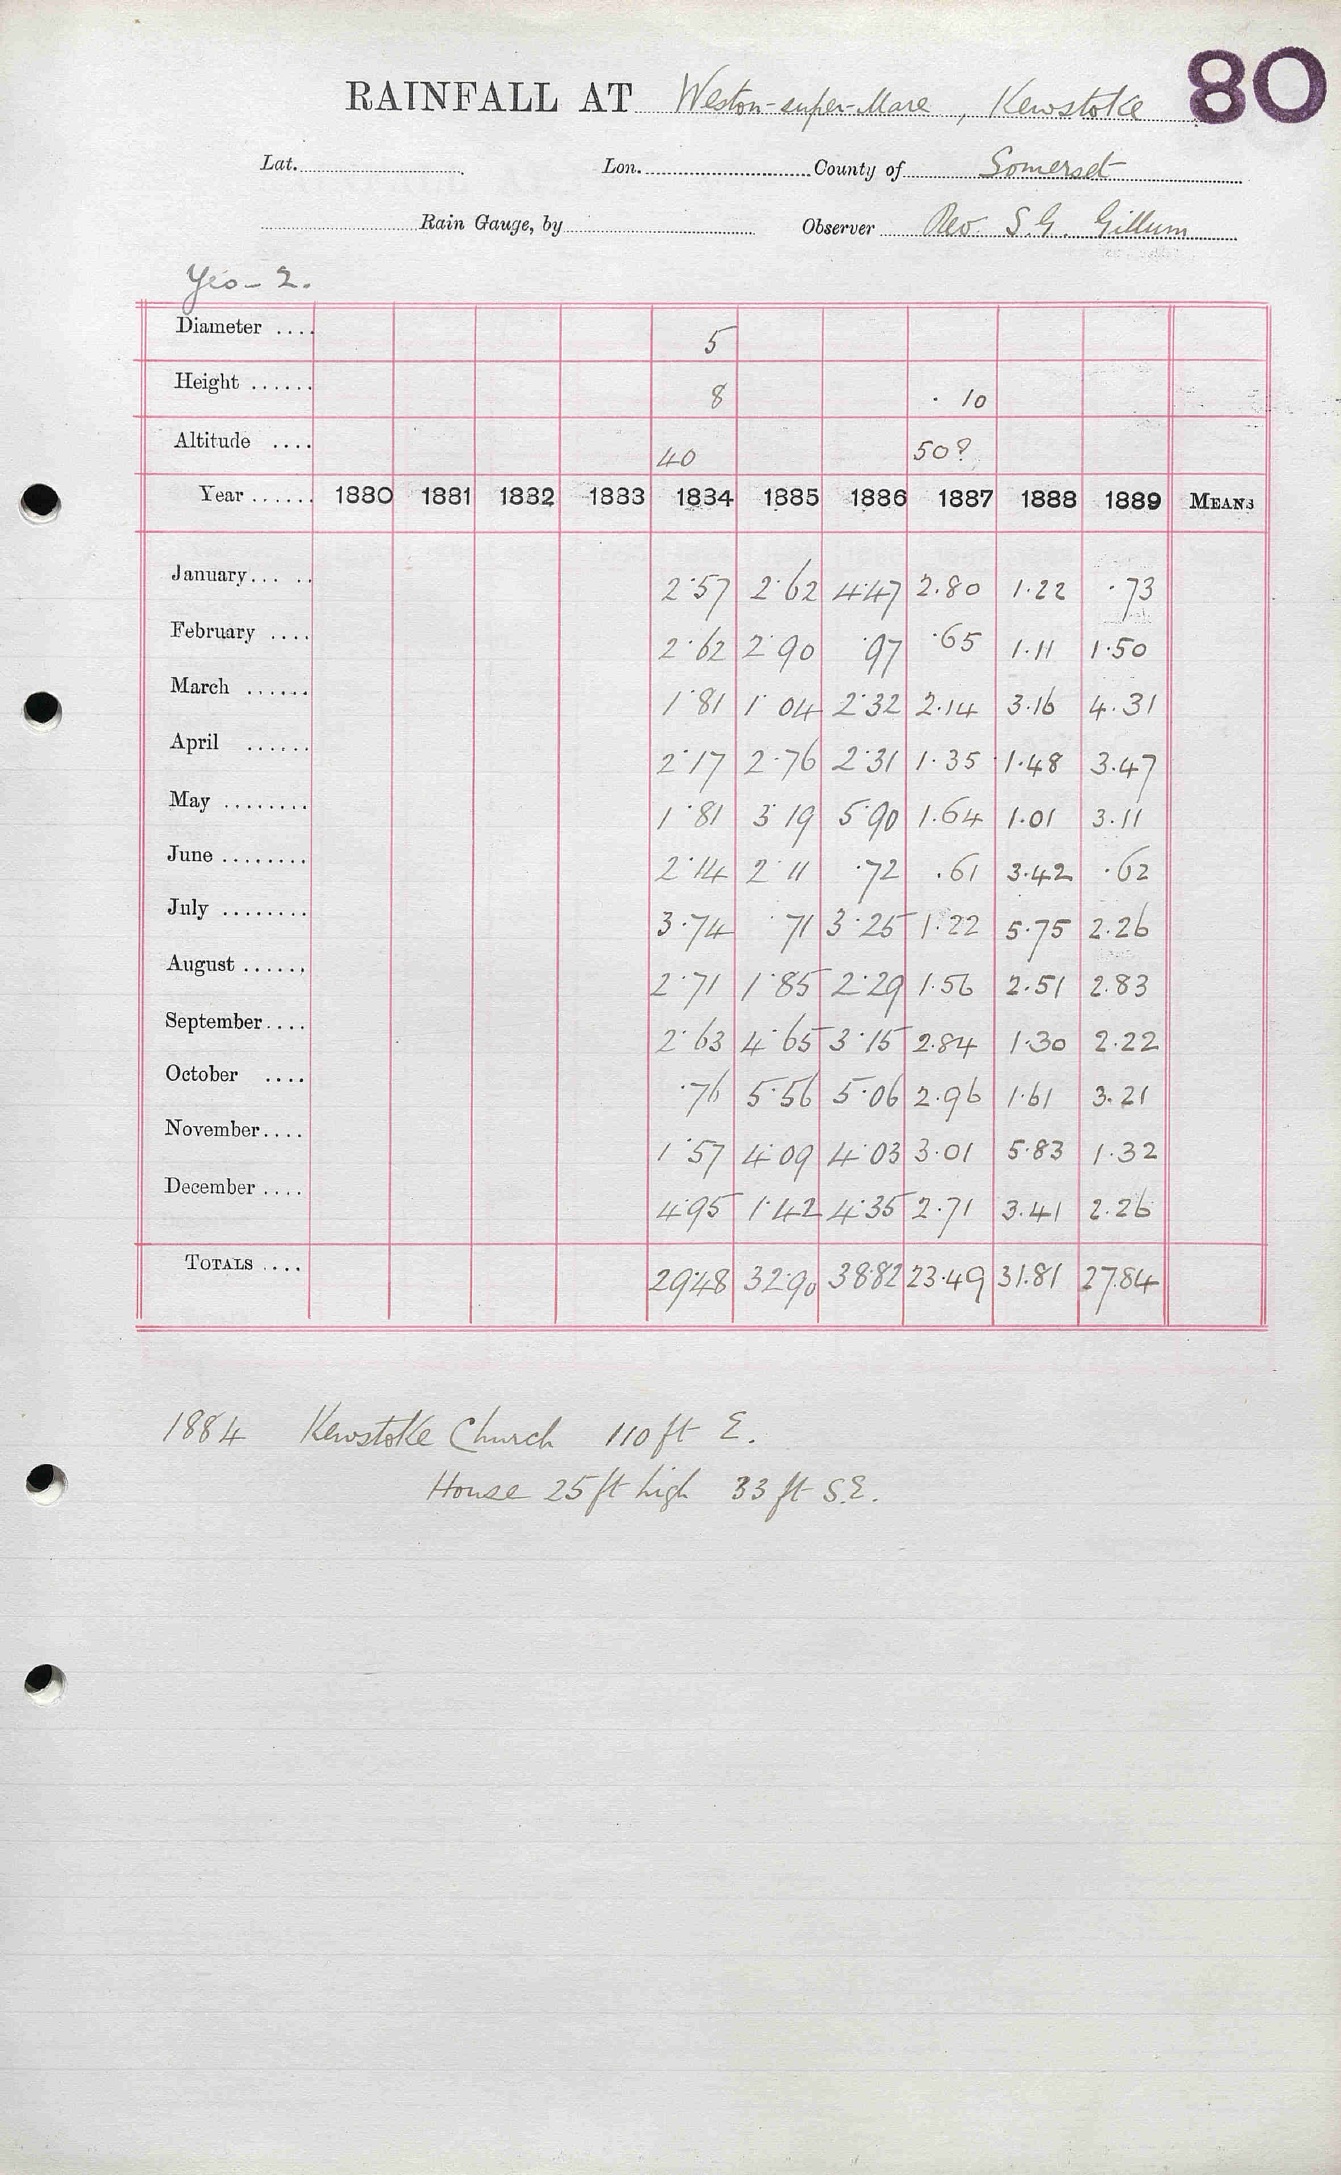 80
RAINFALL AT Weston-super-Mare, Kewstoke
Lat. Lon. County of Somerset
Rain Gauge, by Observer Rev S. G. Gillum
Yeo - 2.
Diameter .... 5
Height ...... 8 . 10
Altitude .... 40 50?
Year ...... 1880 1881 1882 1883 1884 1885 1886 1887 1888 1889 MEANS
January... .. 2.57 2.62 4.47 2.80 1.22 .73
February .... 2.62 2.90 .97 .65 1.11 1.50
March ...... 1.81 1.04 2.32 2.14 3.16 4.31
April ...... 2.17 2.76 2.31 1.35 1.48 3.47
May ........ 1.81 3.19 5.90 1.64 1.01 3.11
June ........ 2.14 2.11 .72 .61 3.42 .62
July ........ 3.74 .71 3.25 1.22 5.75 2.26
August ...... 2.71 1.85 2.29 1.56 2.51 2.83
September.... 2.63 4.65 3.15 2.84 1.30 2.22
October .... .76 5.56 5.06 2.96 1.61 3.21
November.... 1.57 4.09 4.03 3.01 5.83 1.32
December .... 4.95 1.42 4.35 2.71 3.41 2.26
TOTALS .... 29.48 32.90 38.82 23.49 31.81 27.84
1884 Kewstoke Church 110 ft E.
House 25 ft high 33 ft S.E.